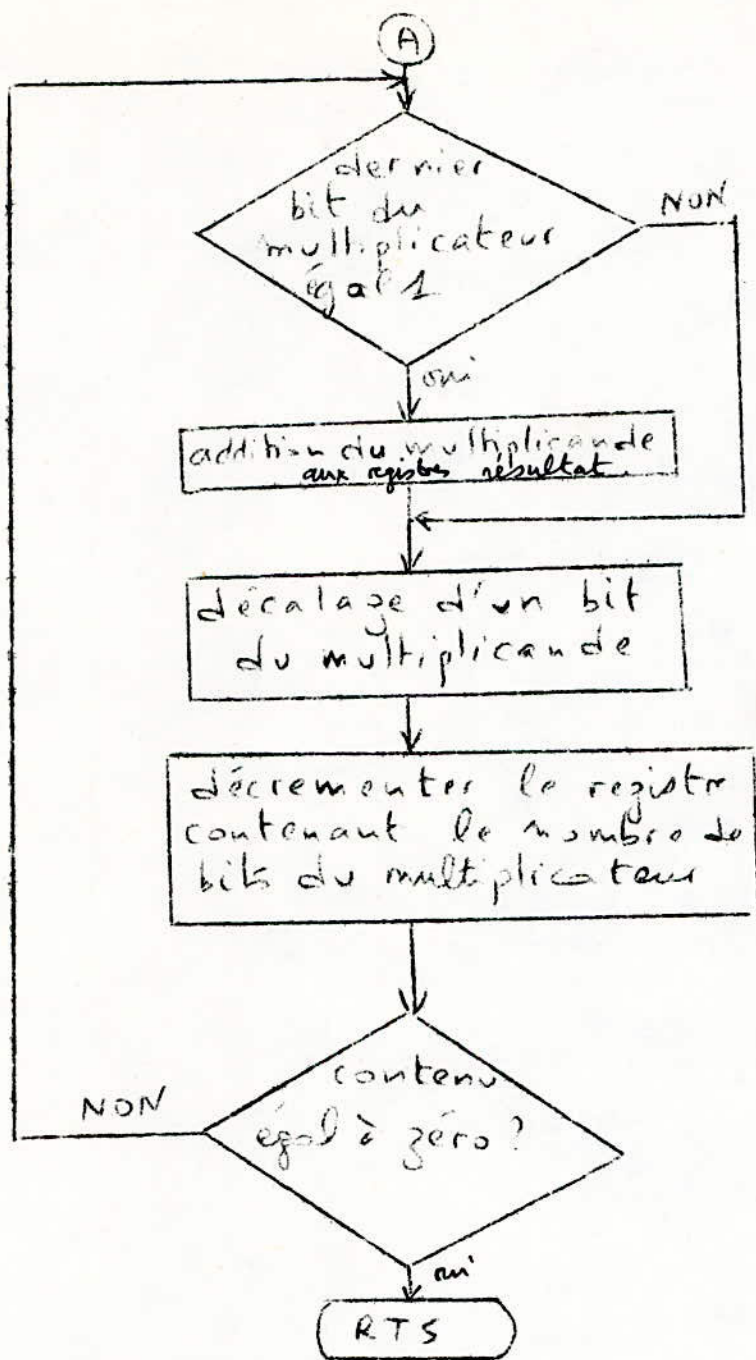 A
dernier
bit du
multiplicateur
égal 1
NON
oui
addition du multiplicande
aux registres résultat.
décalage d'un bit
du multiplicande
décrementer le registre
contenant le nombre de
bits du multiplicateur
contenu
égal à zéro?
NON
oui
RTS